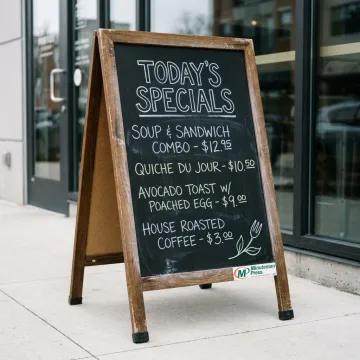 TODAY'S
SPECIALS
SOUP & SANDWICH
COMBO - $12.95
QUICHE DU JOUR - $10.50
AVOCADO TOAST W/
POACHED EGG - $9.00
HOUSE ROASTED
COFFEE - $3.00
MP Minuteman
Press